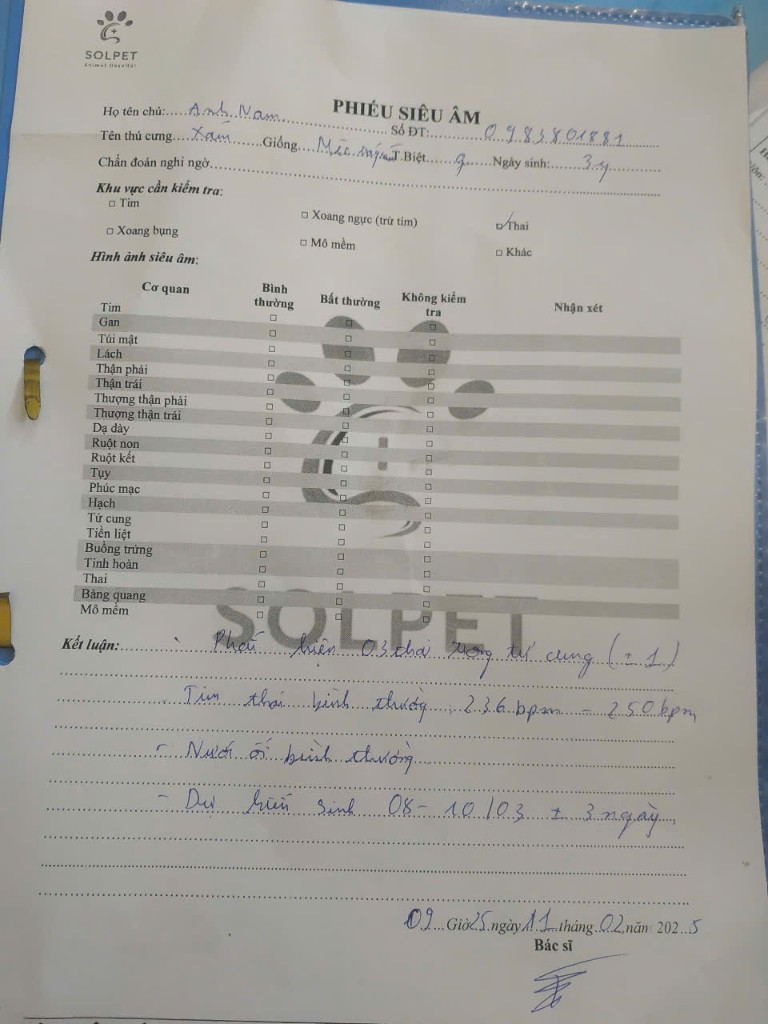 SOLPET
Animal Hospital
PHIẾU SIÊU ÂM
Họ tên chủ: Anh Nam Số ĐT: 0983801881
Tên thú cưng Xám Giống Mèo T.Biệt ♀ Ngày sinh: 3y
Chẩn đoán nghi ngờ
Khu vực cần kiểm tra:
□ Tim □ Xoang ngực (trừ tim) ☑ Thai
□ Xoang bụng □ Mô mềm □ Khác
Hình ảnh siêu âm:
Cơ quan Bình thường Bất thường Không kiểm tra Nhận xét
Tim □ □ □
Gan □ □ □
Túi mật □ □ □
Lách □ □ □
Thận phải □ □ □
Thận trái □ □ □
Thượng thận phải □ □ □
Thượng thận trái □ □ □
Dạ dày □ □ □
Ruột non □ □ □
Ruột kết □ □ □
Tụy □ □ □
Phúc mạc □ □ □
Hạch □ □ □
Tử cung □ □ □
Tiền liệt □ □ □
Buồng trứng □ □ □
Tinh hoàn □ □ □
Thai □ □ □
Bàng quang □ □ □
Mô mềm □ □ □
SOLPET
Kết luận: Phát hiện 03 thai trong tử cung (± 1)
Tim thai bình thường 236 bpm - 250 bpm
- Nước ối bình thường
- Dự kiến sinh 08 - 10/03 ± 3 ngày
09 Giờ 25 ngày 11 tháng 02 năm 2025
Bác sĩ